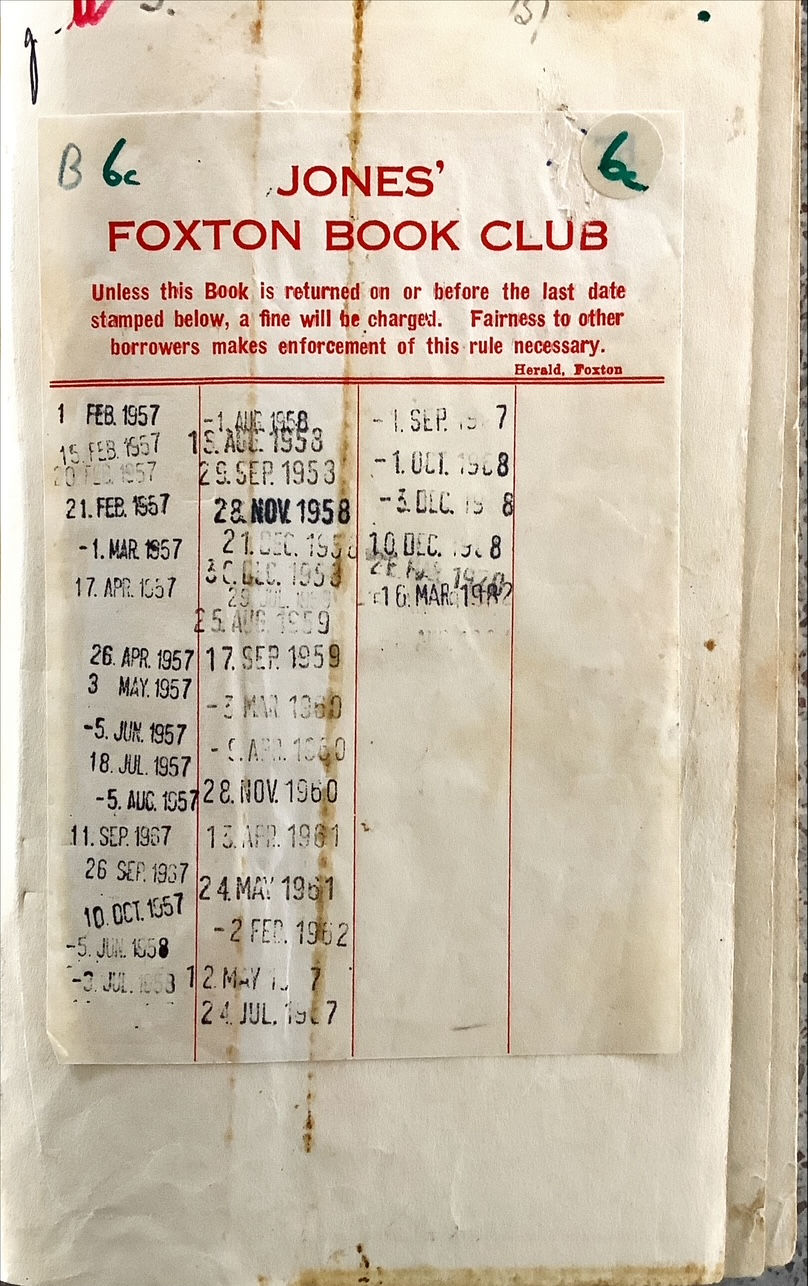 B 6c
6c
JONES'
FOXTON BOOK CLUB
Unless this Book is returned on or before the last date
stamped below, a fine will be charged. Fairness to other
borrowers makes enforcement of this rule necessary.
Herald, Foxton
1 FEB. 1957
15. FEB. 1957
21. FEB. 1957
-1. MAR. 1957
17. APR. 1957
26. APR. 1957
3 MAY. 1957
-5. JUN. 1957
18. JUL. 1957
-5. AUG. 1957
11. SEP. 1957
26 SEP. 1957
10. OCT. 1957
-5. JUN. 1958
-3. JUL. 1958
-1. AUG. 1958
15. AUG. 1958
29. SEP. 1958
28. NOV. 1958
21. DEC. 1958
30. DEC. 1958
25. AUG. 1959
17. SEP. 1959
-3 MAR 1960
-9. APR. 1960
28. NOV. 1960
13. APR. 1961
24. MAY 1961
-2 FEB. 1962
12. MAY
24. JUL. 1967
-1. SEP.
-1. OCT. 1968
-3. DEC.
10. DEC.
16. MAR.